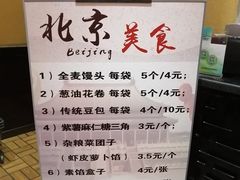 北京美食
Beijing
1）全麦馒头 每袋 5个/4元；
2）葱油花卷 每袋 5个/4元；
3）传统豆包 每袋 4个/10元；
4）紫薯麻仁糖三角 3元/个；
5）杂粮菜团子
（虾皮萝卜馅） 3.5元/个
6）素馅盒子 4元/张